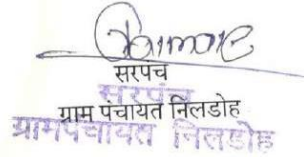 सरपंच
सरपंच
ग्राम पंचायत निलडोह
ग्रामपंचायत निलडोह